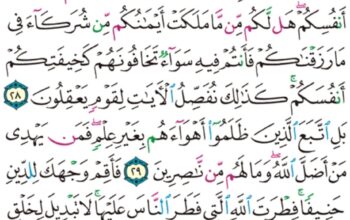 أَنفُسِكُمْ ۖ هَل لَّكُم مِّن مَّا مَلَكَتْ أَيْمَٰنُكُم مِّن شُرَكَآءَ فِى
مَا رَزَقْنَٰكُمْ فَأَنتُمْ فِيهِ سَوَآءٌ تَخَافُونَهُمْ كَخِيفَتِكُمْ
أَنفُسَكُمْ ۚ كَذَٰلِكَ نُفَصِّلُ ٱلْـَٔايَٰتِ لِقَوْمٍ يَعْقِلُونَ ٢٨
بَلِ ٱتَّبَعَ ٱلَّذِينَ ظَلَمُوٓا۟ أَهْوَآءَهُم بِغَيْرِ عِلْمٍ ۖ فَمَن يَهْدِى
مَنْ أَضَلَّ ٱللَّهُ ۖ وَمَا لَهُم مِّن نَّٰصِرِينَ ٢٩ فَأَقِمْ وَجْهَكَ لِلدِّينِ
حَنِيفًا ۚ فِطْرَتَ ٱللَّهِ ٱلَّتِى فَطَرَ ٱلنَّاسَ عَلَيْهَا ۚ لَا تَبْدِيلَ لِخَلْقِ